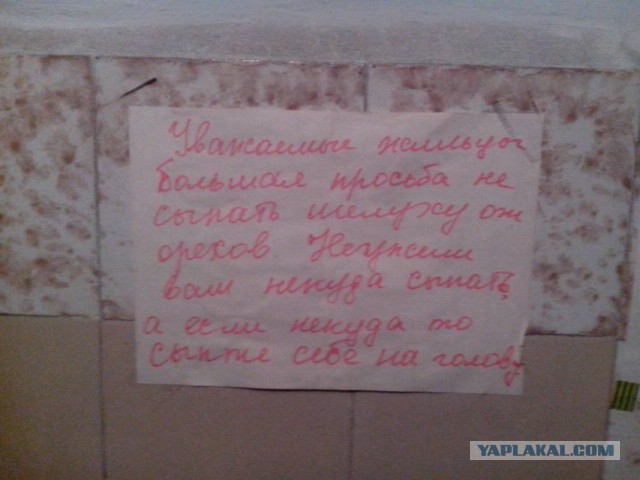 Уважаемые жильцы
Большая просьба не
сыпать шелуху от
орехов. Неужели
вам некуда сыпать,
а если некуда то
сыпте себе на голову
YAPLAKAL.COM